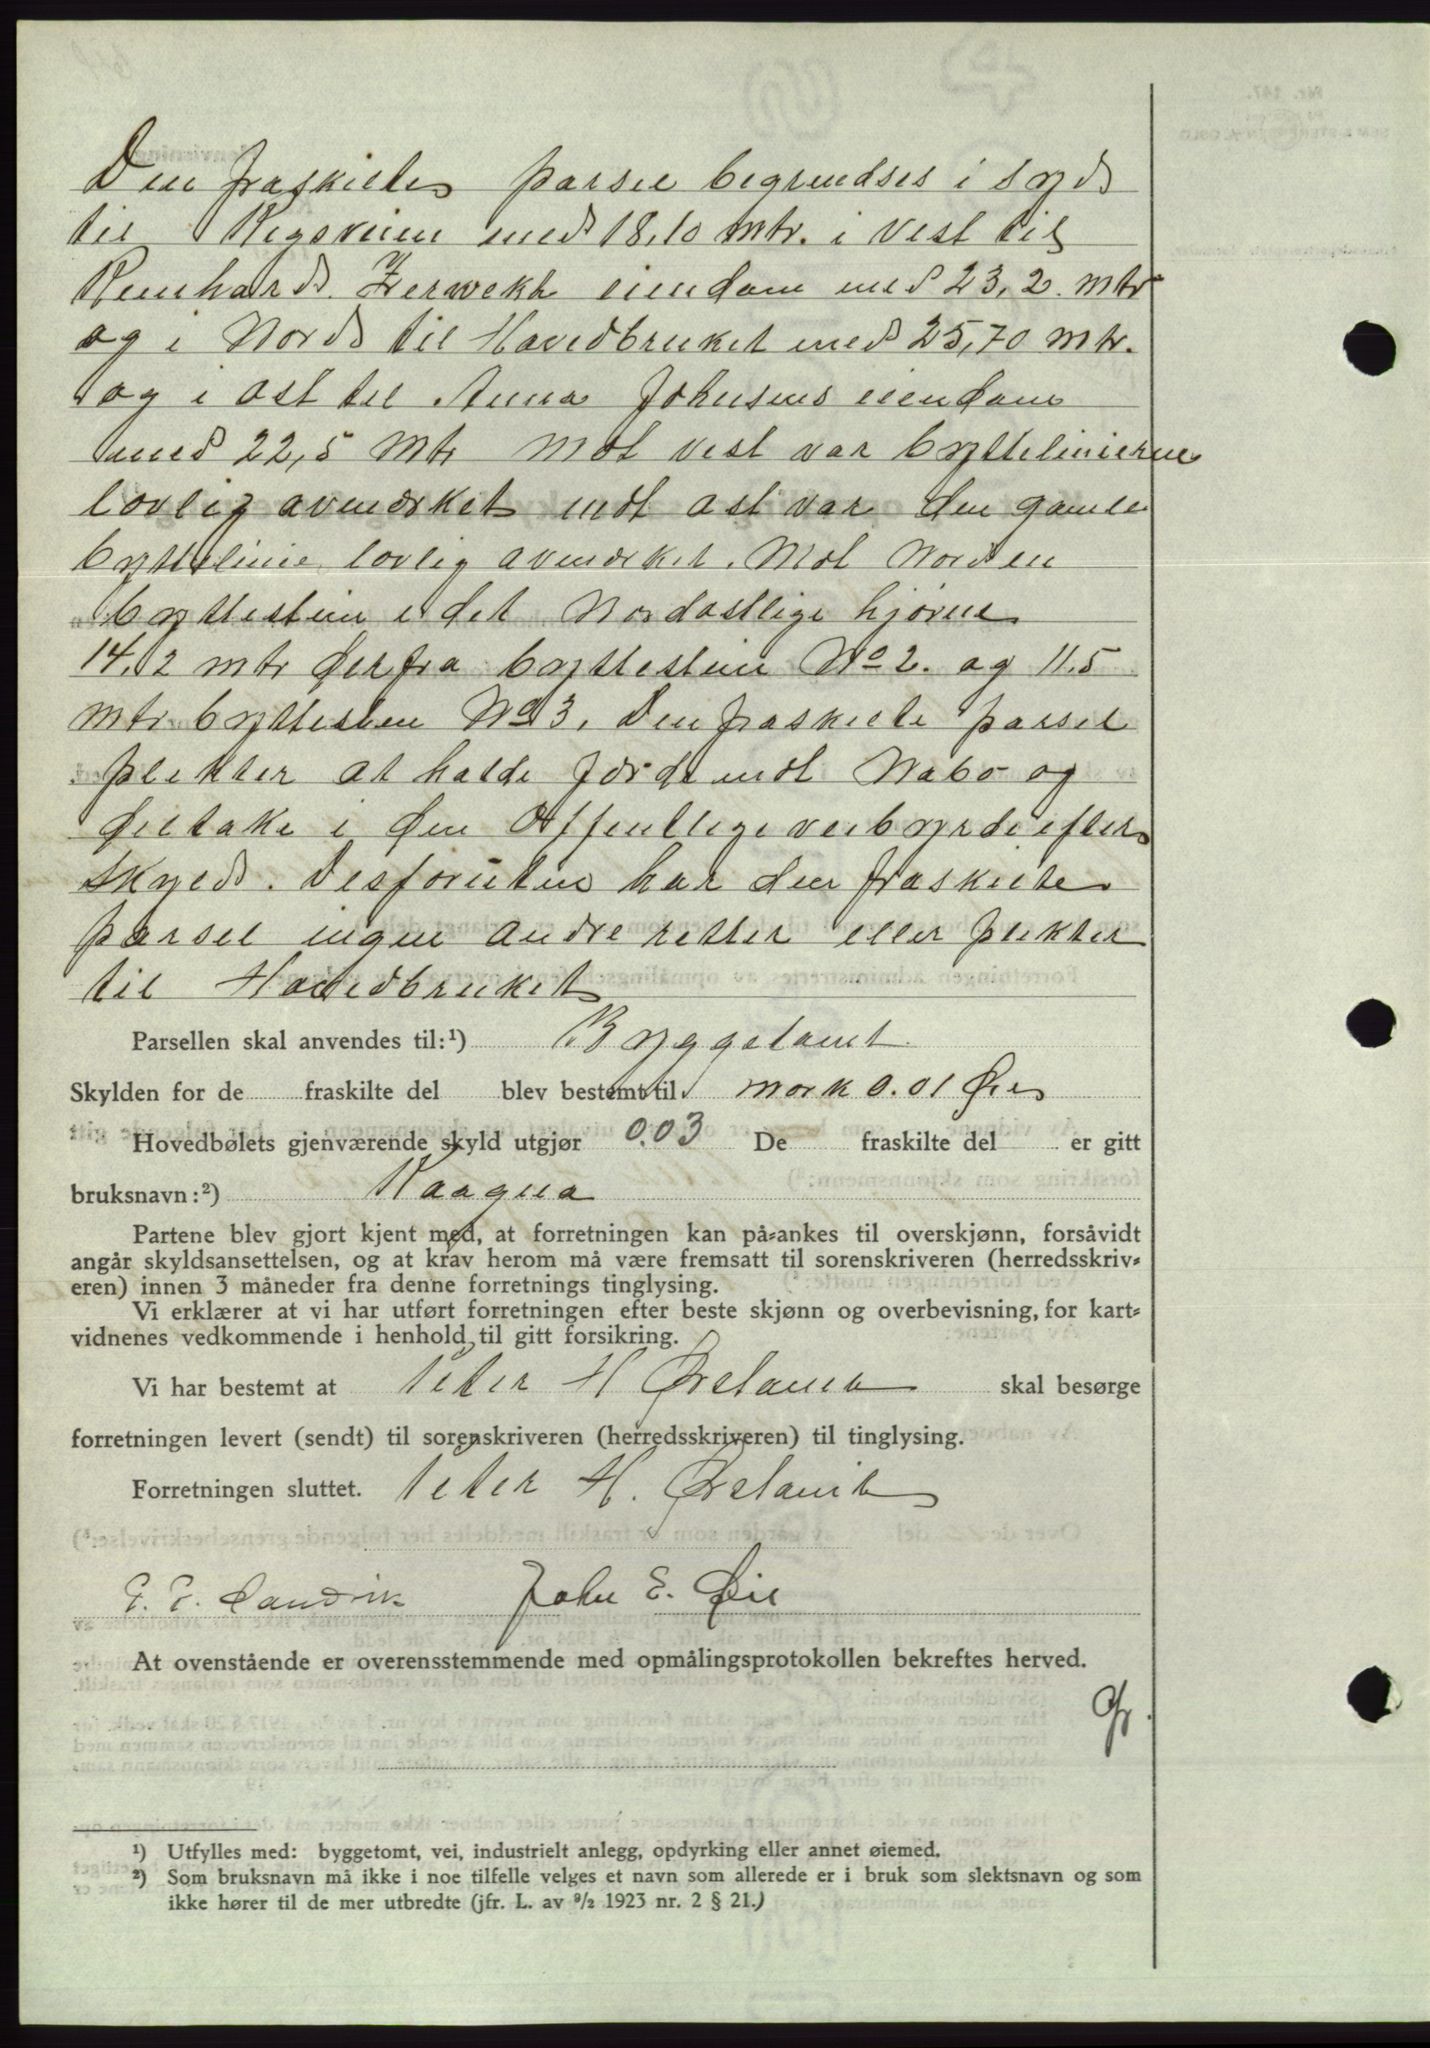 Den fraskielte parsel begrendses i syd
til Rigsveien med 18,10 mtr. i vest til
Reinhard Zerwekh eiendom med 23,2 mtr
og i Nord til Hovedbruket med 25,70 mtr.
og i ost til Anna Johnsens eiendom
med 22,5 mtr Mot vest var byttelinierne
lovlig avmerket mot ost var den gamle
byttelinie lovlig avmerket. Mot Nord en
byttestein i det Nordostlige hjørne
14,2 mtr derfra byttestein No 2. og 11.5
mtr byttesten No 3. Den fraskielte parsel
plikter at halde jorde mot Nabo og
deltake i den Offentlige veibyrde efter
skyld. Desforuten har den fraskielte
parsel ingen andre retter eller plikter
til Hovedbruket
Parsellen skal anvendes til:¹) Byggetomt
Skylden for de fraskilte del blev bestemt til mork 0.01 Øre
Hovedbølets gjenværende skyld utgjør 0.03 De fraskilte del er gitt
bruksnavn:²)
Partene blev gjort kjent med, at forretningen kan på-ankes til overskjønn, forsåvidt
angår skyldsansettelsen, og at krav herom må være fremsatt til sorenskriveren (herredsskriv-
eren) innen 3 måneder fra denne forretnings tinglysing.
Vi erklærer at vi har utført forretningen efter beste skjønn og overbevisning, for kart-
vidnenes vedkommende i henhold til gitt forsikring.
Vi har bestemt at Peter H Ørstavik skal besørge
forretningen levert (sendt) til sorenskriveren (herredsskriveren) til tinglysing.
Forretningen sluttet. Peter H. Ørstavik
P. P. Sandvik John E. Øie
At ovenstående er overensstemmende med opmålingsprotokollen bekreftes herved.
¹) Utfylles med: byggetomt, vei, industrielt anlegg, opdyrking eller annet øiemed.
²) Som bruksnavn må ikke i noe tilfelle velges et navn som allerede er i bruk som slektsnavn og som
ikke hører til de mer utbredte (jfr. L. av 9/2 1923 nr. 2 § 21.)